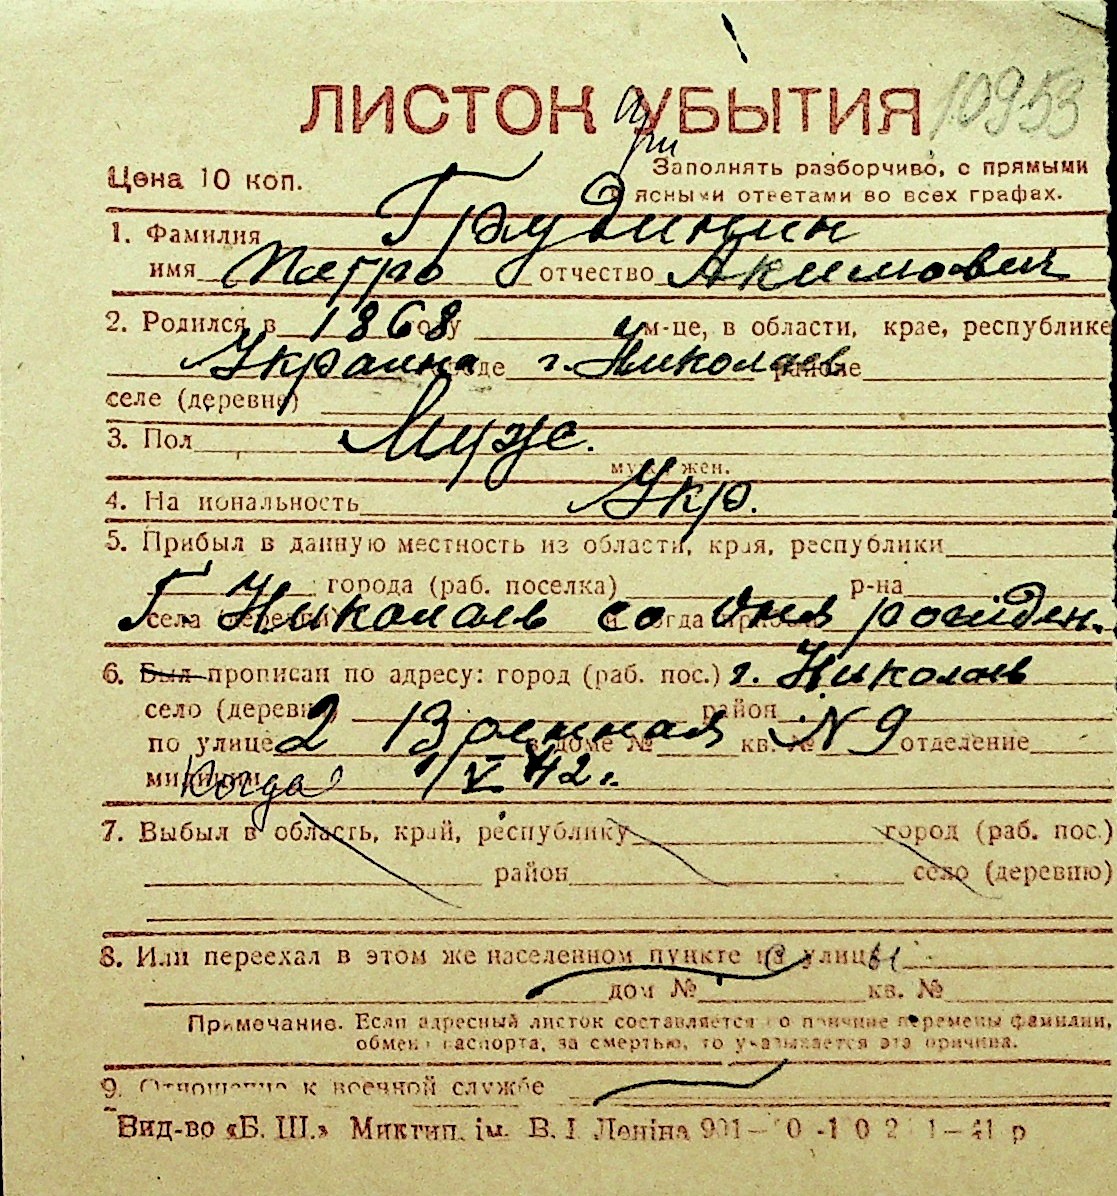 ЛИСТОК УБЫТИЯ 10953
при
Цена 10 коп.
Заполнять разборчиво, с прямыми
и ясными ответами во всех графах.
1. Фамилия Грудинин
имя Петро отчество Акимович
2. Родился в 1868 году м-це, в области, крае, республике
Украина городе г. Николаев районе
селе (деревне)
3. Пол Муж.
муж. жен.
4. Национальность Укр.
5. Прибыл в данную местность из области, края, республики
города (раб. поселка) р-на
села (деревни) и когда прибыл
Г. Николаев со дня рожден.
6. Был прописан по адресу: город (раб. пос.) г. Николаев
село (деревня) район
по улице 2 Военная в доме № кв. № N 9 отделение
милиции Когда 1/V 42 г.
7. Выбыл в область, край, республику город (раб. пос.)
район село (деревню)
8. Или переехал в этом же населенном пункте с улицы
дом № кв. №
Примечание. Если адресный листок составляется по причине перемены фамилии,
обмена паспорта, за смертью, то указывается эта причина.
9. Отношение к военной службе
Вид-во «Б. Ш.» Миктип. ім. В. І. Леніна